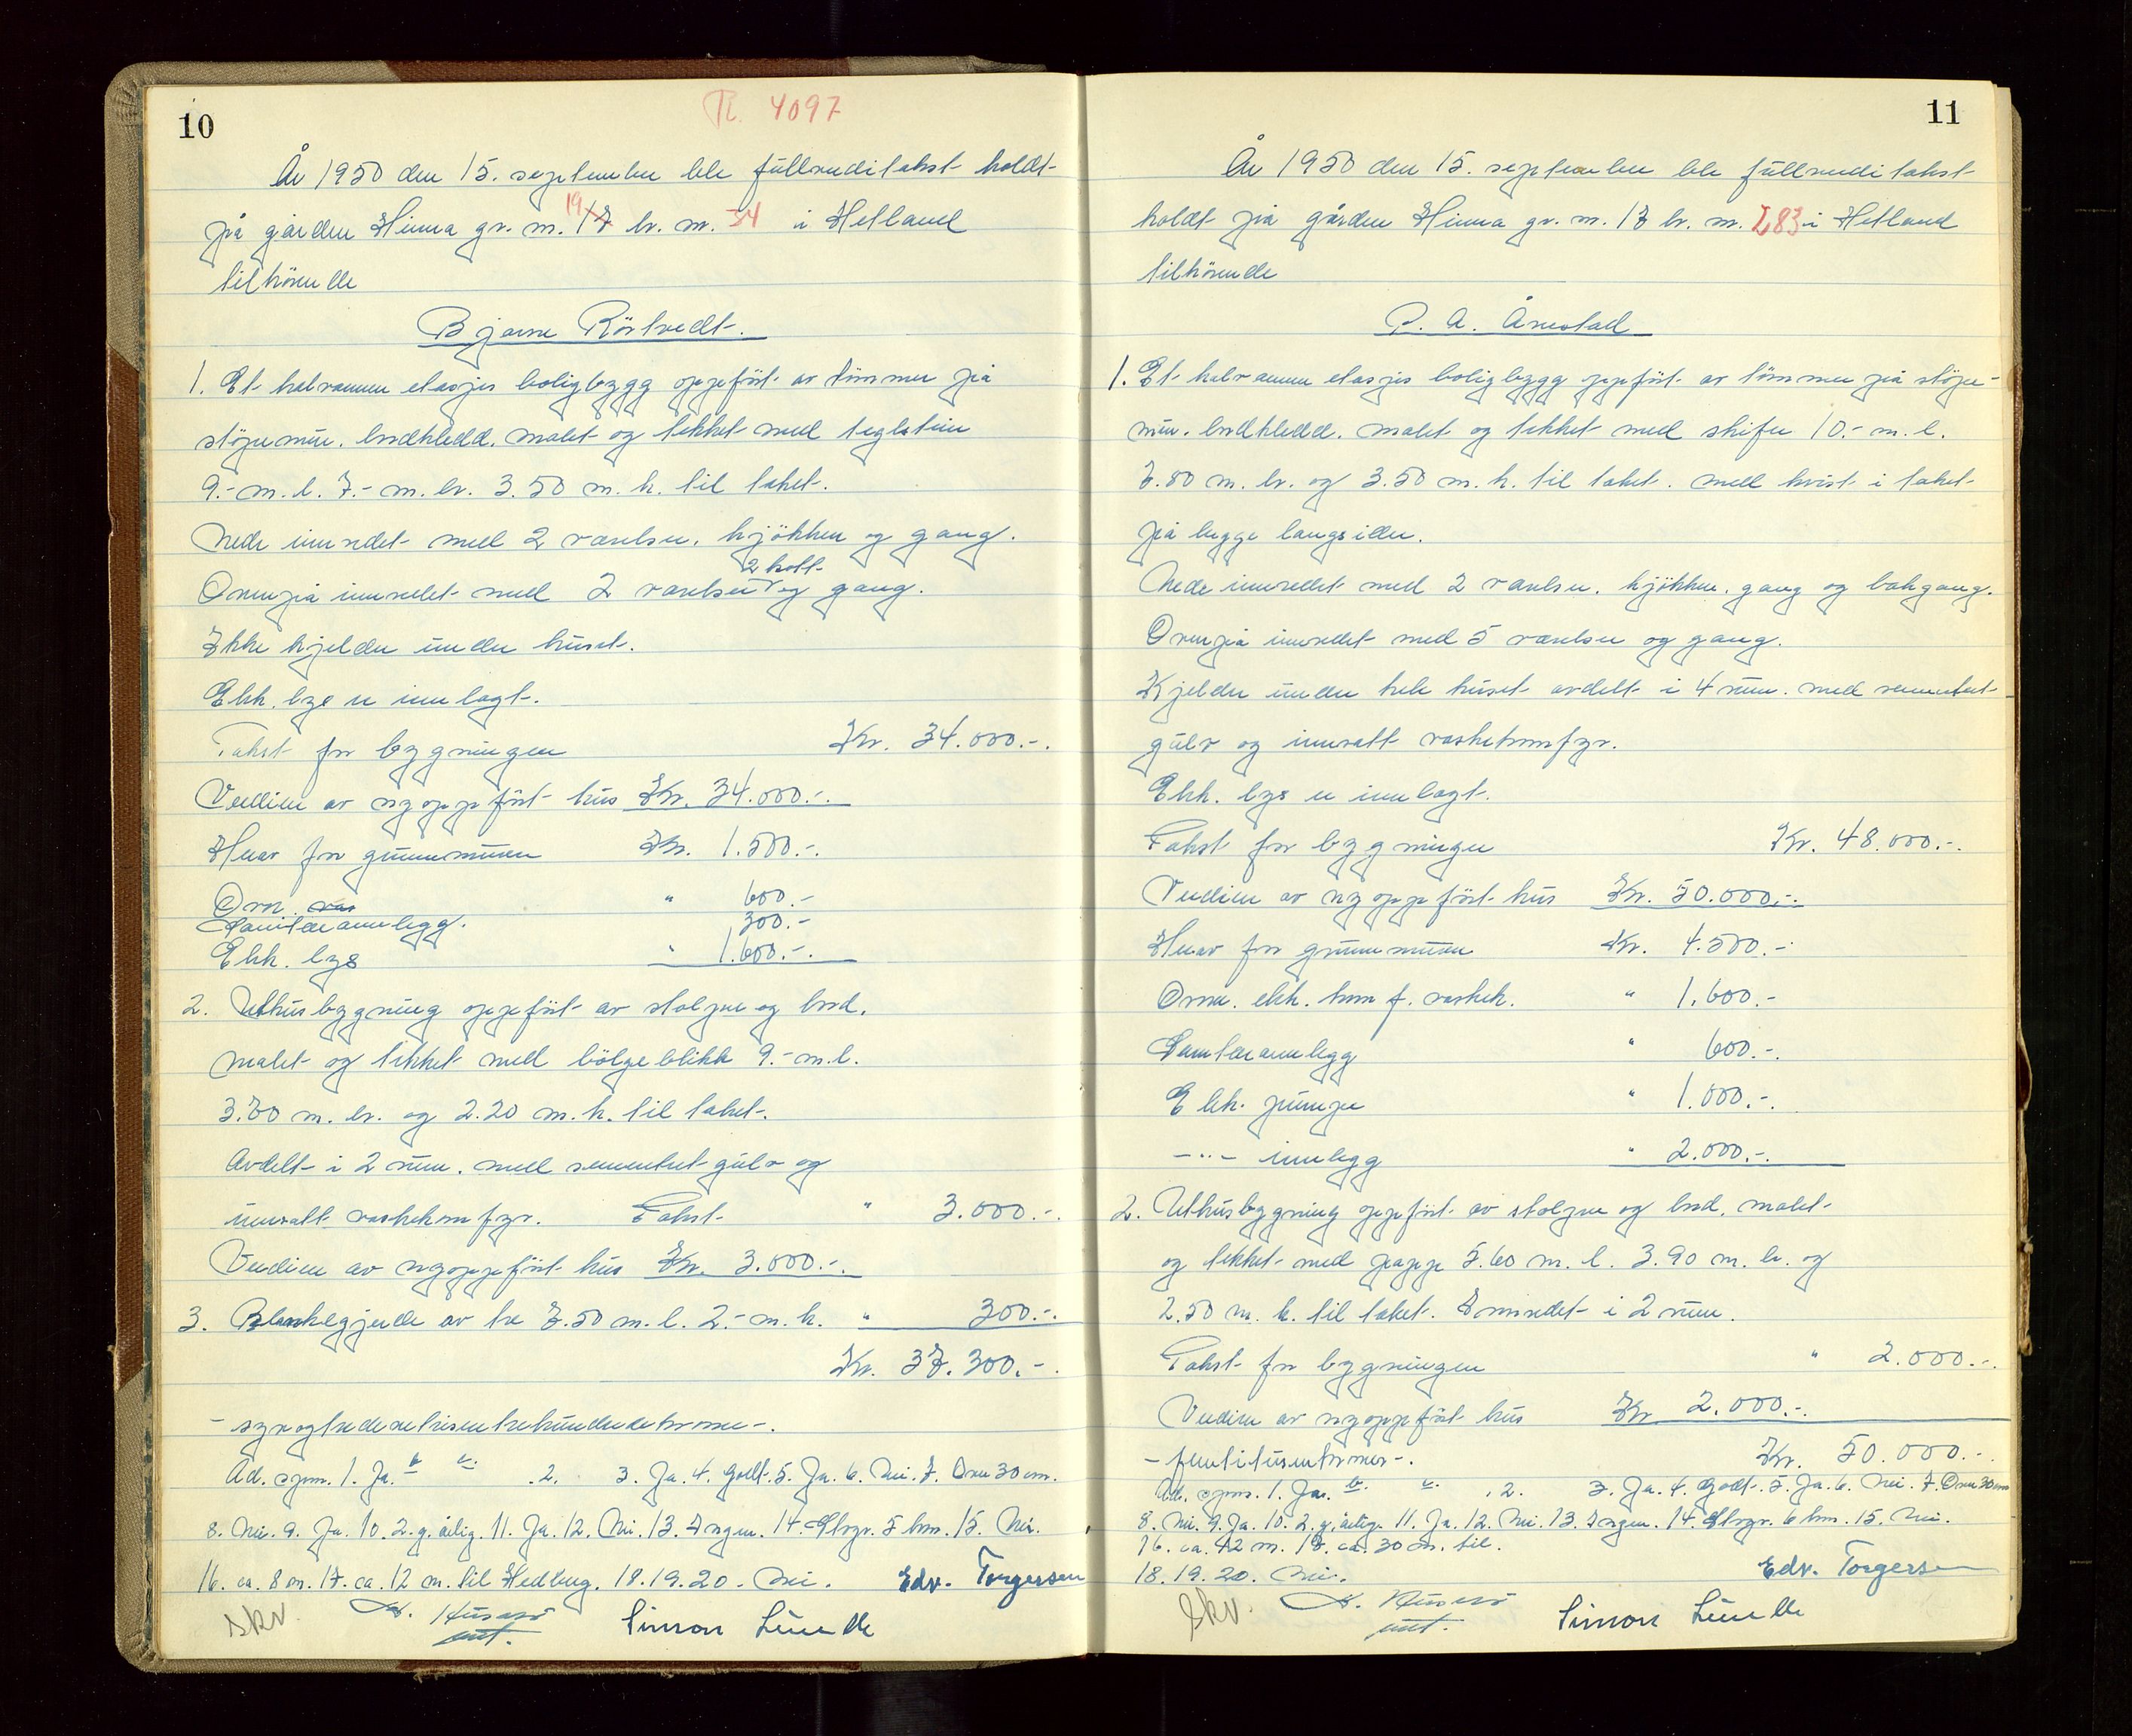 10
R. 4097
År 1950 den 15. september ble fullverditakst holdt
på gården Hinna gr. nr. 17 19 br. nr. 54 i Hetland
tilhörende
Bjarne Rörtvedt.
1. Et halvannen etasjes boligbygg oppfört av tömmer på
stöpemur. bordkledd. malt og tekket med teglstein
9.- m. l. 7.- m. br. 3.50 m. h. til taket.
Nede innredet med 2 værelser. kjökken og gang.
Ovenpå innredet med 2 værelser 2 kott og gang.
Ikke kjelder under huset.
Elek. lys er innlagt.
Takst for bygningen Kr. 34.000.-.
Verdien av nyoppfört hus Kr. 34.000.-.
Herav for grunnmuren Kr. 1.500.-.
Ovn
" 600.-
Sanitæranlegg. 300.-
Elek. lys " 1.600.-.
2. Uthusbygning oppfört av stolper og bord.
malet og tekket med bölgeblikk 9.- m. l.
3.70 m. br. og 2.20 m. h. til taket.
Avdelt i 2 rum. med sementert gulv og
innsatt vaskekomfyr. Takst " 3.000.-.
Verdien av nyoppfört hus Kr. 3.000.-.
3. Plankegjerde av tre 7.50 m. l. 2.- m. h. " 300.-.
Kr. 37.300.-.
- syvogtredevetusentrehundredekroner -.
Ad. spm. 1. Ja. b c. .2. 3. Ja. 4. Godt. 5. Ja. 6. Nei. 7. Over 30 cm.
8. Nei. 9. Ja. 10. 2. g. årlig. 11. Ja. 12. Nei. 13. Ingen. 14. Stvgr. 5 km. 15. Nei.
16. ca. 8 m. 17. ca. 12 m. til Hedberg. 18. 19. 20. Nei. Edv. Torgersen
skv. Simon Lunde
11
År 1950 den 15. september ble fullverditakst
holdt på gården Hinna gr. nr. 17 br. nr. 283 i Hetland
tilhörende
P. A. Årrestad
1. Et halvannen etasjes boligbygg oppfört av tömmer på stöpe-
mur. bordkledd. malet og tekket med skifer 10.- m. l.
7.80 m. br. og 3.50 m. h. til taket. med kvist i taket
på begge langsider.
Nede innredet med 2 værelser. kjökken. gang og bakgang.
Ovenpå innredet med 5 værelser og gang.
Kjelder under hele huset avdelt i 4 rum. med sementert
gulv og innsatt vaskekomfyr.
Elek. lys er innlagt.
Takst for bygningen Kr. 48.000.-.
Verdien av nyoppfört hus Kr. 50.000.-.
Herav for grunnmuren Kr. 4.500.-.
Ovner. elek. kom f. vaskek. " 1.600.-
Sanitæranlegg " 600.-.
Elek. pumpe " 1.000.-.
-"- innlegg " 2.000.-.
2. Uthusbygning oppfört av stolper og bord. malet
og tekket med papp 5.60 m. l. 3.90 m. br. og
2.50 m. h. til taket. Innredet i 2 rum.
Takst for bygningen " 2.000.-.
Verdien av nyoppfört hus Kr 2.000.-.
- femtitusenkroner -. Kr. 50.000.-.
Ad. spm. 1. Ja. b. c. .2. 3. Ja. 4. Godt. 5. Ja. 6. Nei. 7. Over 30 cm
8. Nei. 9. Ja. 10. 2. g. årlig. 11. Ja. 12. Nei. 13. Ingen. 14. Stvgr. 6 km. 15. Nei.
16. ca. 12 m. 17. ca. 30 m. til.
18. 19. 20. Nei. Edv. Torgersen
Skv. Simon Lunde